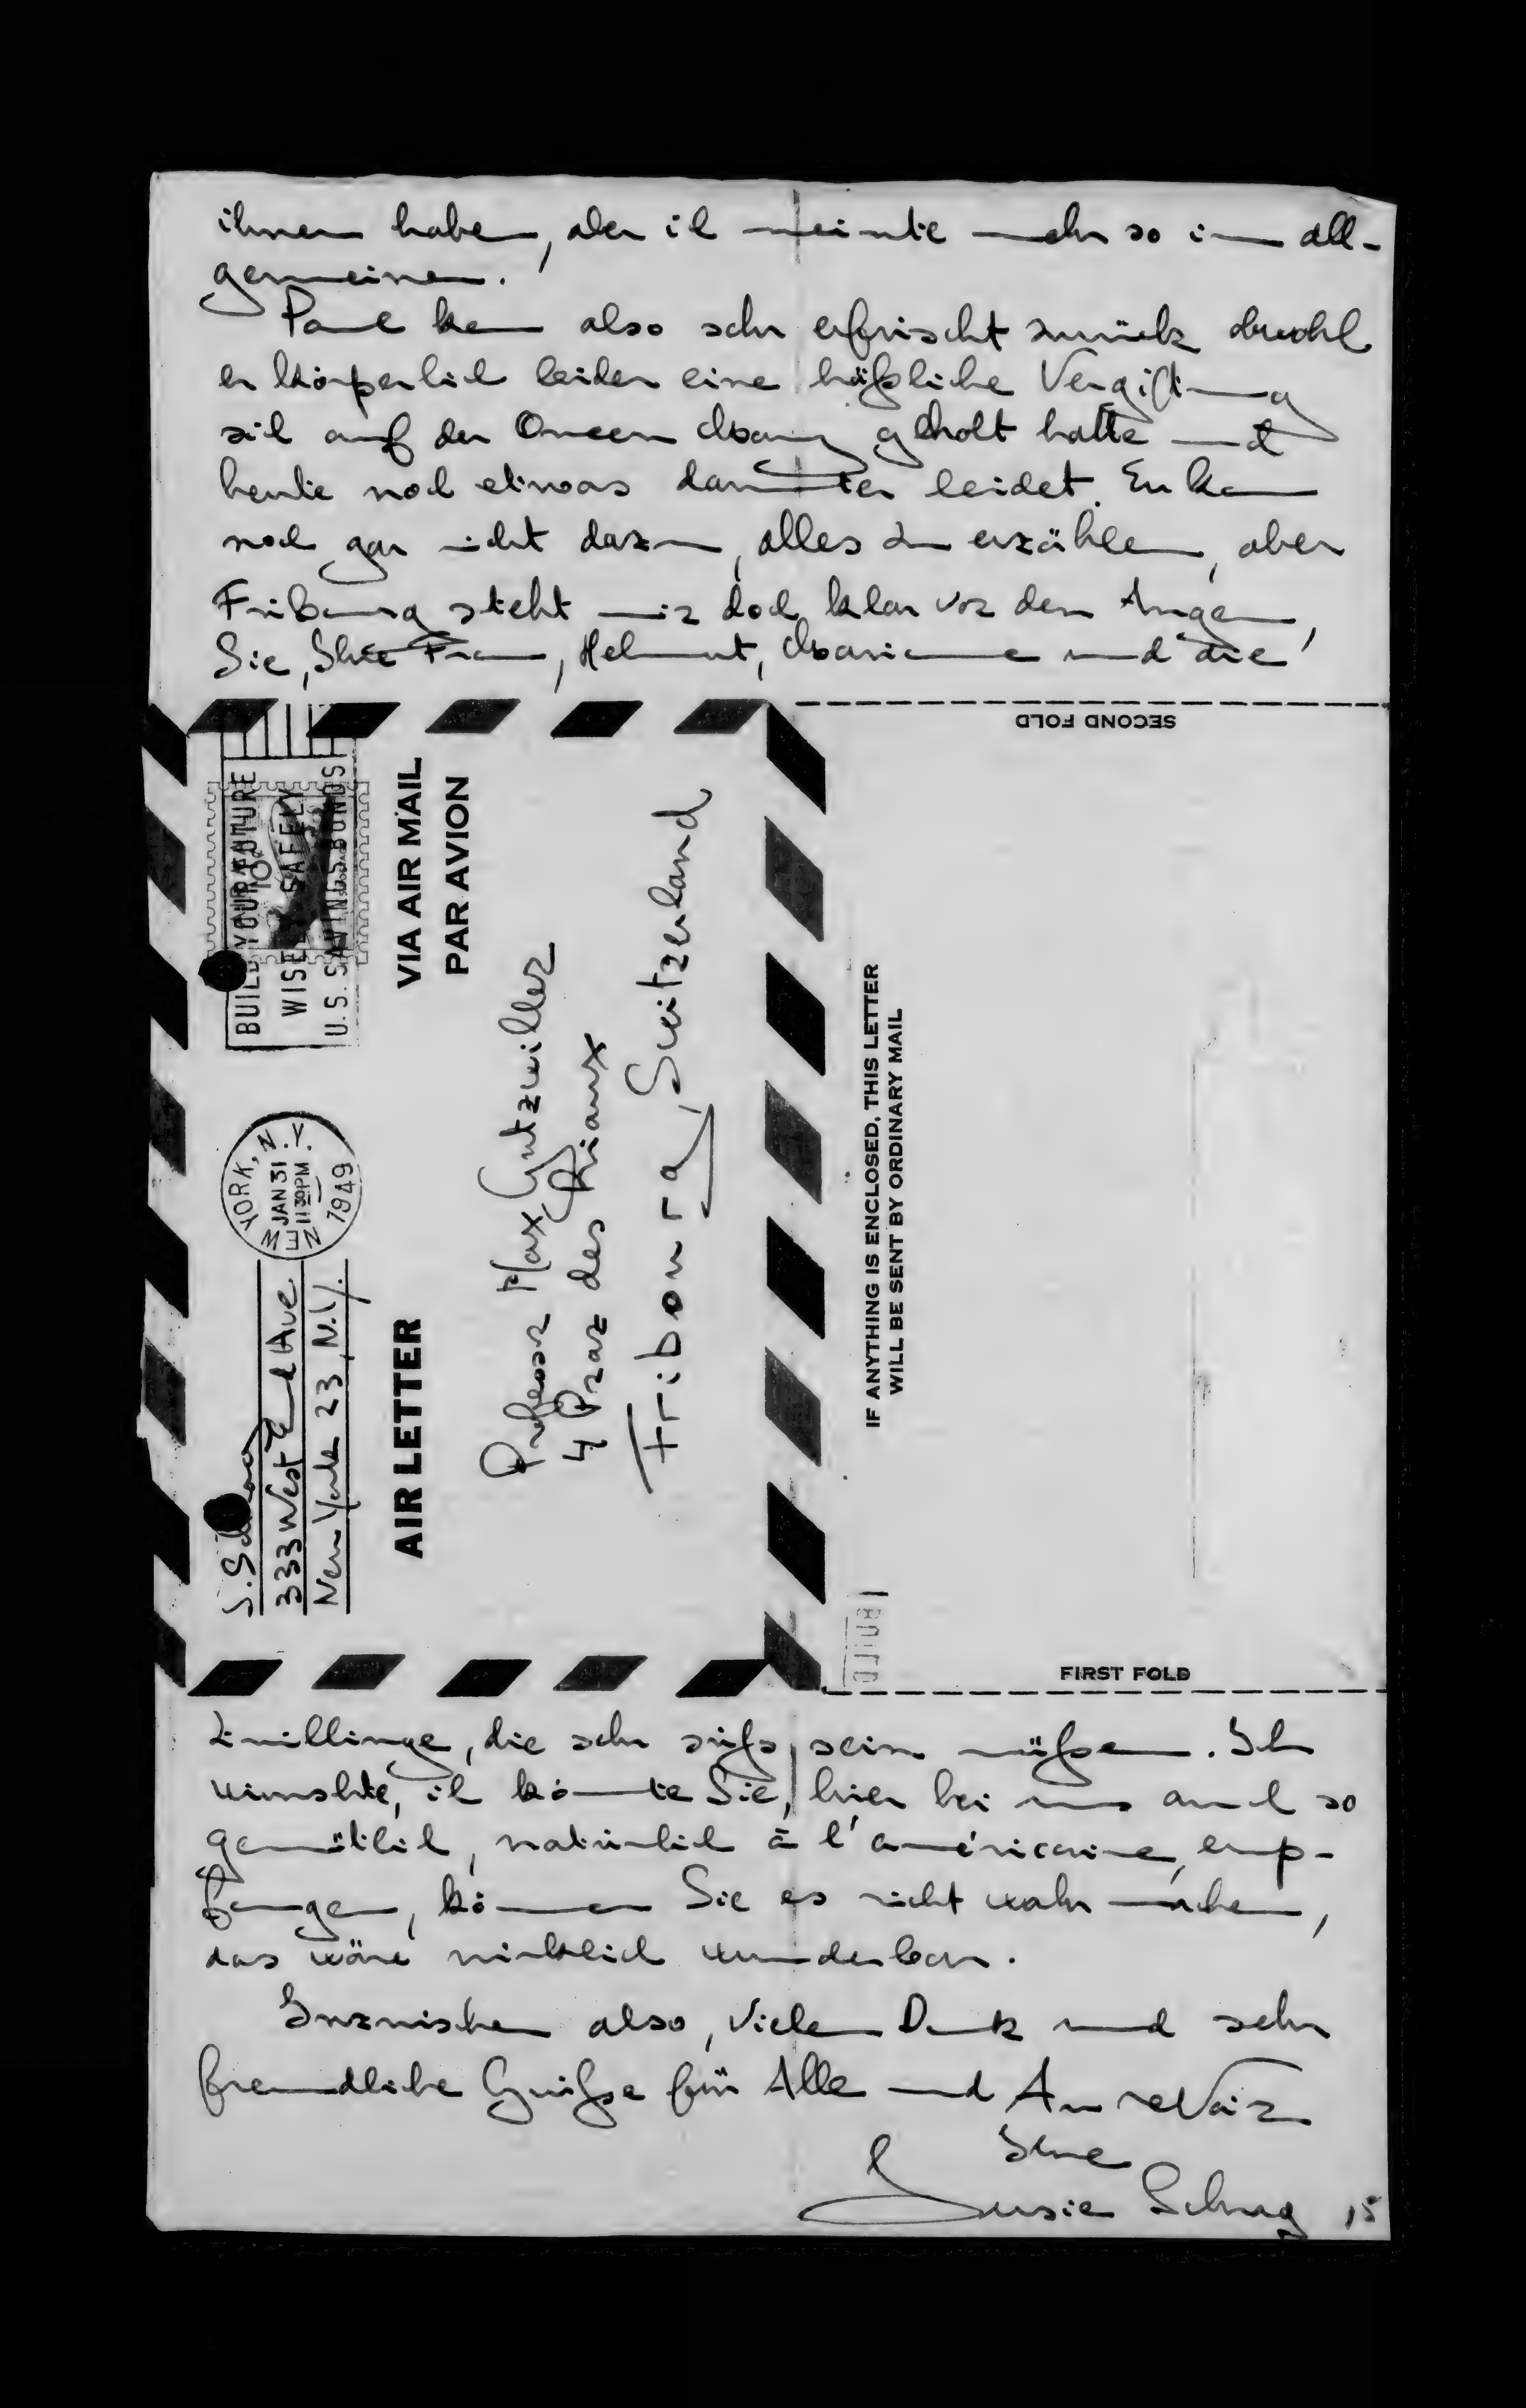 ihnen habe, aber ich meinte mehr so im all-
gemeinen.
Paul kam also sehr erfrischt zurück obwohl
er körperlich leider eine häßliche Vergiftung
sich auf der Queen Mary geholt hatte und
heute noch etwas darunter leidet. Er kam
noch gar nicht dazu, alles zu erzählen, aber
Fribourg steht mir doch klar vor den Augen,
Sie, Ihre Frau, Helmut, Marianne und die
SECOND FOLD
BUILD YOUR FUTURE
WISELY SAFELY
U.S. SAVINGS BONDS
10¢
VIA AIR MAIL
PAR AVION
NEW YORK, N.Y.
JAN 31
11 30 PM
1949
S. Schrag
333 West End Ave
New York 23, N.Y.
AIR LETTER
Professor Max Gutzwiller
4 Praz des Riaux
Fribourg, Switzerland
IF ANYTHING IS ENCLOSED, THIS LETTER
WILL BE SENT BY ORDINARY MAIL
BUILD
FIRST FOLD
Zwillinge, die sehr süß sein müßen. Ich
wünschte, ich könnte Sie, hier bei uns auch so
gemütlich, natürlich à l'américaine, emp-
fangen, können Sie es nicht wahr machen,
das wäre wirklich wunderbar.
Inzwischen also, vielen Dank und sehr
freundliche Grüße für Alle und Au revoir
Ihre
Susie Schrag
15